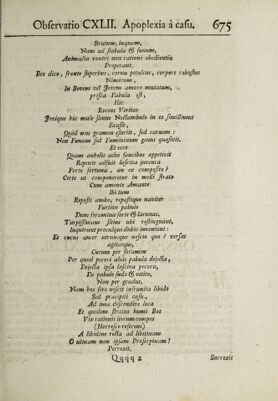 Observatio CXLII. Apoplexia à casu. 675
Brutum, inquam,
Nam ad stabula & foenum,
Animalia ventri non rationi obedientia
Properant.
Bos dico, fronte superbus, cornu petulcus, corpore robustus
Nimirum,
In Bovem vel Jovem amore mutatum,
prisca Fabula est,
Hic
Recens Veritas
Jovique hic male sanus Noctambulo in eo simillimus
Evasit,
Quòd non gramen esuriit, sed carnem:
Non Foenum sed Foemininum genus quaesivit.
Et ecce
Quàm anhelis adeo faucibus appetivit
Repente adfuit lasciva juvenca
Fortè fortuna, an ex composito?
Certè ut componeretur in molli strato
Cum amente Amante.
Ibi tum
Repositi ambo, repostique naviter
Furtivo pabulo
Dum foramina fortè & lacunas,
Turpissimam sitim ubi restinguant,
Inquirunt proculque dubio inveniunt:
Et caecus amor utrumque nescio quo? versat
agitatque,
Caecum per foramen
Per quod pecori aliàs pabula dejecta,
Dejecta ipsa lasciva pecora,
De pabulo suo & vetito,
Non per gradus,
Nam hos fere nescit infrunita libido
Sed praecipiti casu,
Ad ima descendere loca
Et quodam stratus humi Bos
Vix rationis iterum compos
(Horresco referens)
A libidine recta ad libitinam
O utinam non ipsam Proserpinam!
Perrexit,
Qqqq 2 Surrexit